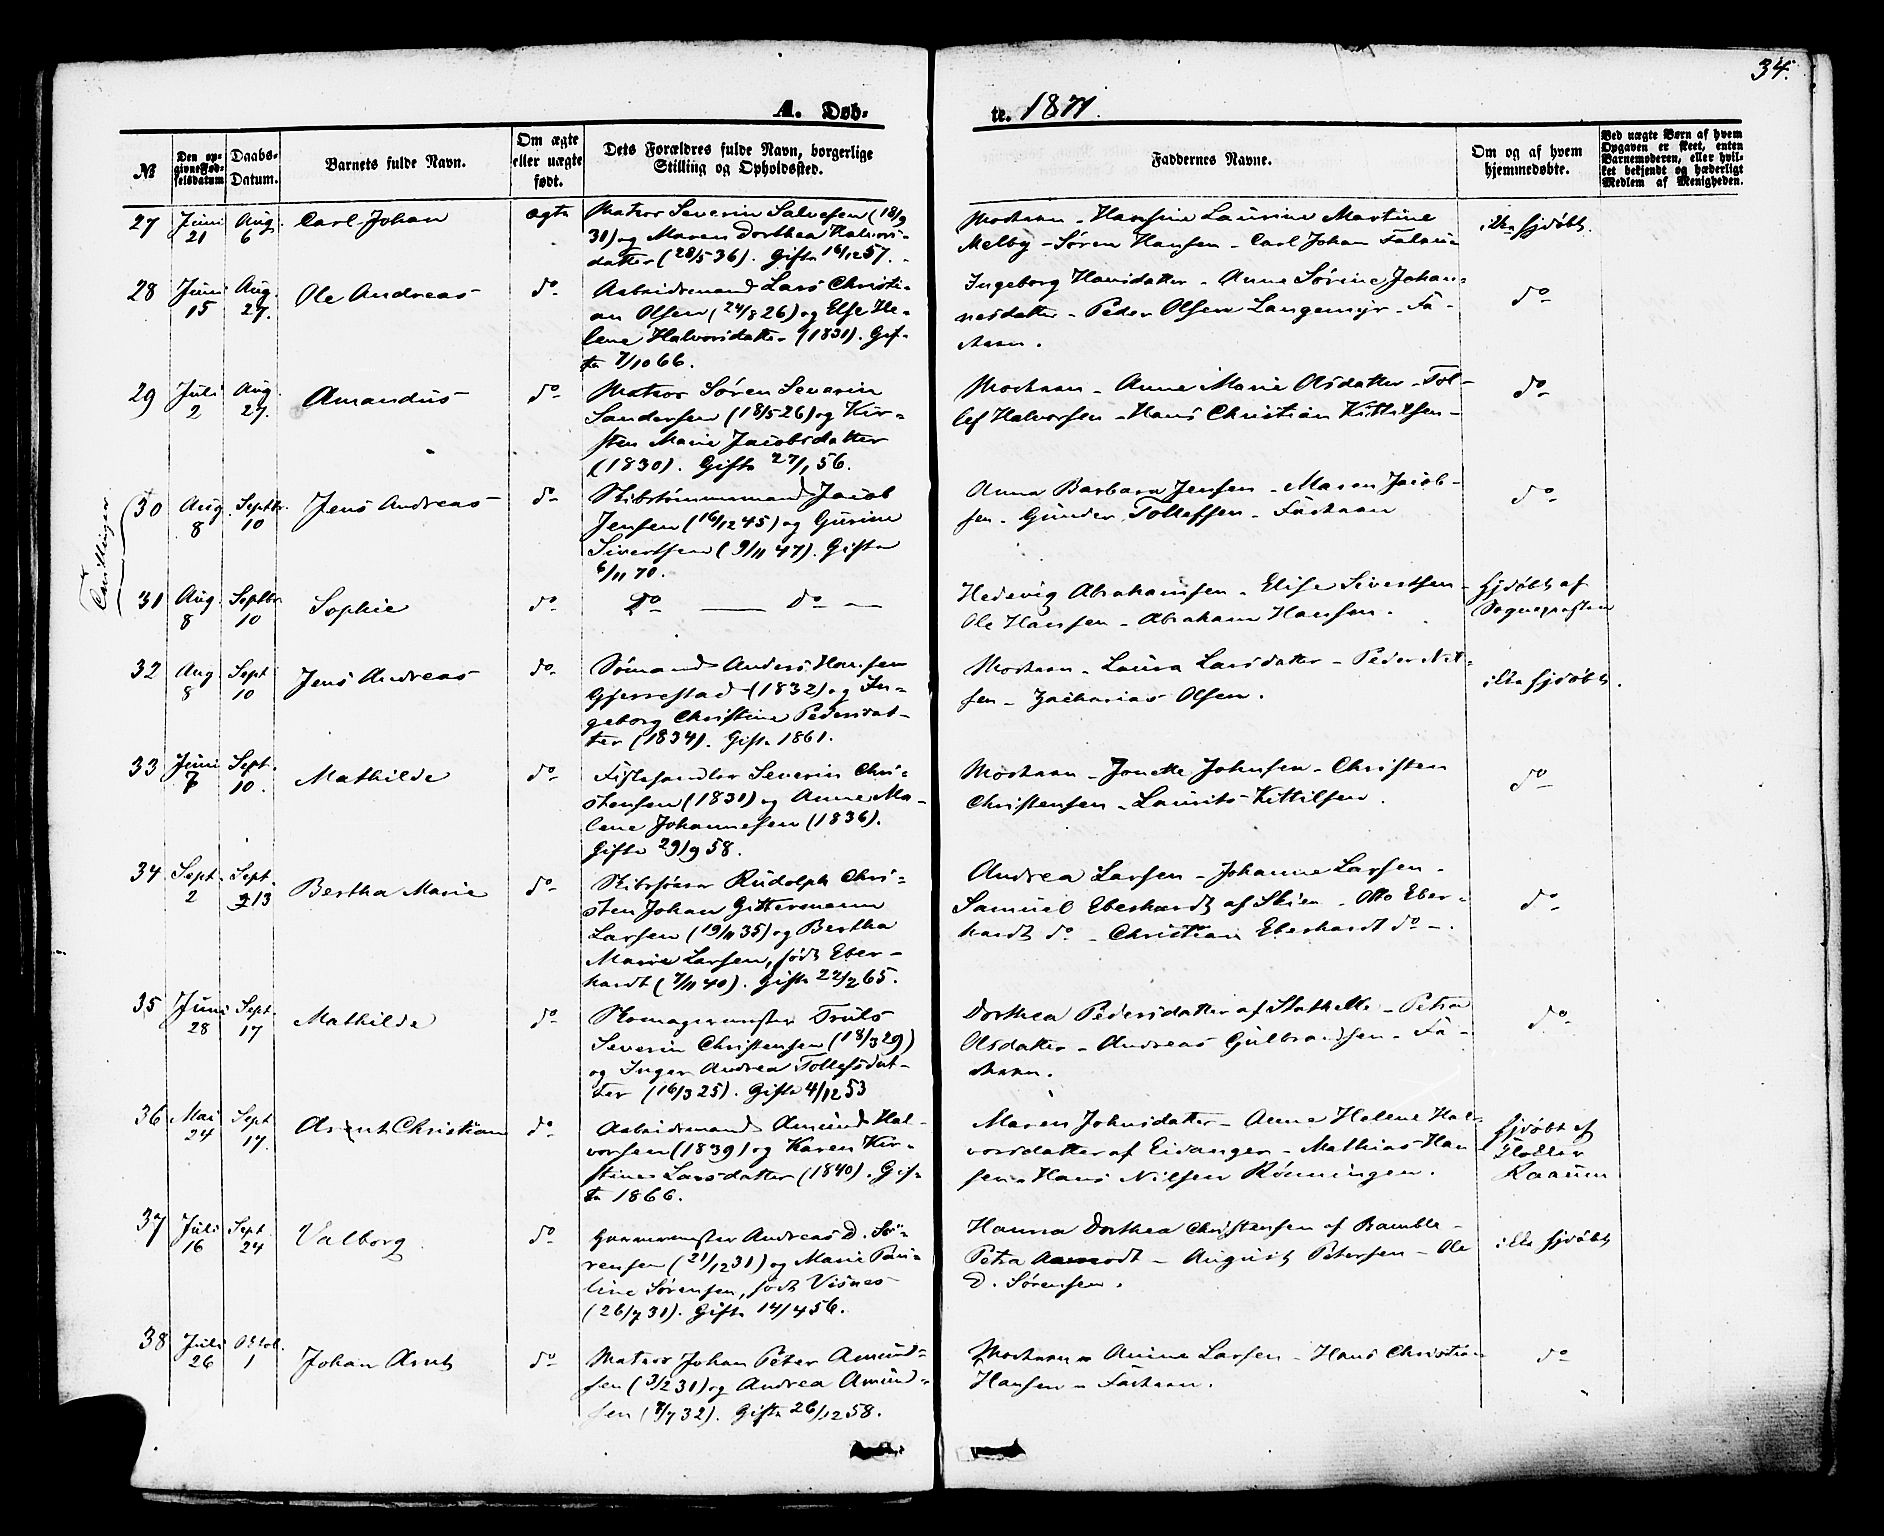 34.
A. Døb-
te. 1871.
№
Den opgivne Fødselsdatum
Daabs-Datum.
Barnets fulde Navn.
Om ægte eller uægte født.
Dets Forældres fulde Navn, borgerlige Stilling og Opholdssted.
Faddernes Navne.
Om og af hvem hjemmedøbte.
Ved uægte Børn af hvem Opgaven er skeet, enten Barnemoderen, eller hvilket bekjendt og hæderligt Medlem af Menigheden.
27 Juni 21 Aug. 6 Carl Johan ægte
Matros Severin Salvesen (18/9
31) og Maren Dorthea Halvors-
datter (28/5 36). Gifte 16/12 57.
Moderen - Hansine Laurine Martine
Melby - Søren Hansen - Carl Johan
ikke hjdøbt.
28 Juni 15 Aug. 27. Ole Andreas do
Arbeidsmand Lars Christi-
an Olsen (24/8 26) og Else He-
lene Halvorsdatter (1831). Gif-
te 7/10 66.
Ingeborg Hansdatter - Anne Sørine Johan-
nesdatter - Peder Olsen Langemyr - Fa-
deren.
do
29 Juli 2 Aug. 27. Amandus do
Matros Søren Severin
Sandersen (18/5 26) og Kir-
sten Marie Jacobsdatter
(1830). Gifte 27/1 56.
Moderen - Anne Marie Olsdatter - Tol-
lef Halvorsen - Hans Christian Kittilsen -
do
Tvillinger
30 Aug. 8 Septbr. 10 Jens Andreas do
Skibstømmermand Jacob
Jensen (16/12 45) og Gurine
Sivertsen (9/11 47). Gifte
6/11 70.
Anna Barbara Jensen - Maren Jacob-
sen - Gunder Tollefsen - Faderen
do
31 Aug. 8 Septbr. 10 Sophie do
do — do —
Hedevig Abrahamsen - Elise Sivertsen -
Ole Hansen - Abraham Hansen.
hjdøbt af
Sognepresten
32 Aug 8 Sept 10 Jens Andreas do
Sømand Anders Hansen
Gjerrestad (1832) og In-
geborg Christine Pedersdat-
ter (1834). Gifte 1861.
Moderen - Laura Larsdatter - Peder Niel-
sen - Zacharias Olsen.
ikke hjdøbt.
33 Juni 7 Sept. 10. Mathilde do
Fiskehandler Severin Chri-
stensen (1831) og Anne Ma-
lene Johannesen (1836).
Gifte 29/9 58.
Moderen - Jonette Johnsen - Christen
Christensen - Laurits Kittilsen.
do
34 Sept. 2 Sept. 13 Bertha Marie do
Skibsfører Rudolph Chri-
sten Johan Gittermann
Larsen (19/11 35) og Bertha
Marie Larsen, født Eber-
hardt (7/11 40). Gifte 22/2 65.
Andrea Larsen - Johanne Larsen -
Samuel Eberhardt af Skien - Otto Eber-
hardt do - Christian Eberhardt do -
do
35 Juni 28 Sept. 17 Mathilde do
Skomagermester Truls
Severin Christensen (18/3 29)
og Inger Andrea Tollefsdat-
ter (16/3 25). Gifte 4/12 53
Dorthea Pedersdatter af Stathelle - Petra
Olsdatter - Andreas Gulbrandsen - Fa-
deren.
do
36 Mai 24 Sept 17. Arent Christian do
Arbeidsmand Amund Hal-
vorsen (1839) og Karen Kir-
stine Larsdatter (1840). Gif-
te 1866.
Maren Johnsdatter - Anne Helene Hal-
vorsdatter af Eidanger - Mathias Han
sen - Hans Nilsen Rønningen.
hjdøbt af
Raaum
37 Juli 16 Sept 24 Valborg do
Garvermester Andreas D. Sø-
rensen (21/12 31) og Marie Pau-
line Sørensen, født Visnes
(26/7 31). Gifte 14/4 56.
Hanna Dorthea Christensen af Bamble -
Petra Aamodt - August Petersen - Ole
D. Sørensen.
ikke hjdøbt
38 Juli 26 Octob. 1 Johan Arnt do
Matros Johan Peter Amund-
sen (3/2 31) og Andrea Amund-
sen (8/7 32). Gifte 26/12 58.
Moderen - Anine Larsen - Hans Christian
Hansen - Faderen.
do